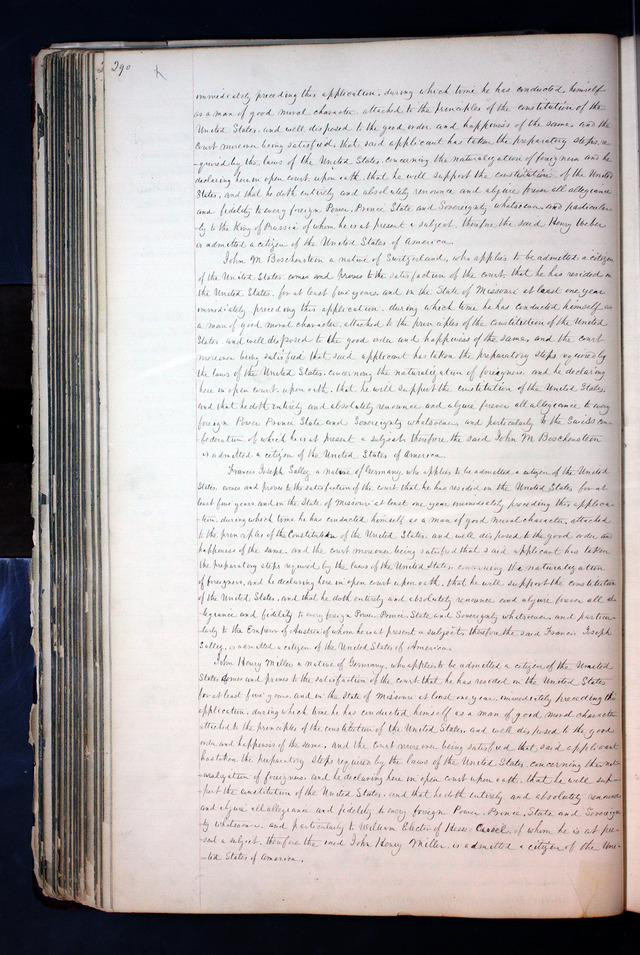 290
immediately preceding this application, during which time he has conducted himself
as a man of good moral character attached to the principles of the constitution of the
United States, and well disposed to the good order and happiness of the same, and the
Court moreover being satisfied that said applicant has taken the preparatory steps re-
-quired by the laws of the United States, concerning the naturalization of foreigners and he
declaring here in open court upon oath, that he will support the constitution of the United
States, and that he doth entirely and absolutely renounce and abjure forever all allegiance
and fidelity to every foreign Power, Prince State and Sovereignty whatsoever and particular
-ly to the King of Prussia of whom he is at present a subject, therefore the said Henry
is admitted a citizen of the United States of America.
John M. Boschenstein a native of Switzerland, who applies to be admitted a citizen
of the United States comes and proves to the satisfaction of the court that he has resided in
the United States, for at least five years, and in the State of Missouri at least one year
immediately preceding this application, during which time he has conducted himself as
a man of good moral character, attached to the principles of the constitution of the United
States, and well disposed to the good order and happiness of the same, and the court
moreover being satisfied that said applicant has taken the preparatory steps required by
the laws of the United States, concerning the naturalization of foreigners and he declaring
here in open court, upon oath, that he will support the constitution of the United States,
and that he doth entirely and absolutely renounce and abjure forever all allegiance to every
foreign Power Prince State and Sovereignty whatsoever and particularly to the Swiss con-
federation of which he is at present a subject, therefore the said John M Boschenstein
is admitted a citizen of the United States of America.
Francis Joseph Salley a native of Germany, who applies to be admitted a citizen of the United
States, comes and proves to the satisfaction of the court that he has resided in the United States for at
least five years, and in the State of Missouri at least one year immediately preceding this applica
-tion, during which time he has conducted himself as a man of good moral character, attached
to the principles of the Constitution of the United States, and well disposed to the good order and
happiness of the same, and the court moreover being satisfied that said applicant has taken
the preparatory steps required by the laws of the United States, concerning the naturalization
of foreigners, and he declaring here in open court upon oath, that he will support the constitution
of the United States, and that he doth entirely and absolutely renounce and abjure forever all al
-legiance and fidelity to every foreign Power, Prince, State and Sovereignty whatsoever, and particu-
-larly to the Emperor of Austria of whom he is at present a subject, therefore the said Francis Joseph
Salley, is admitted a citizen of the United States of America.
John Henry Miller a native of Germany, who applies to be admitted a citizen of the United
States comes and proves to the satisfaction of the court that he has resided in the United States
for at least five years, and in the State of Missouri at least one year, immediately preceding the
application, during which time he has conducted himself as a man of good moral character
attached to the principles of the constitution of the United States, and well disposed to the good
order and happiness of the same, and the court moreover being satisfied that said applicant
has taken the preparatory steps required by the laws of the United States, concerning the nat-
-uralization of foreigners, and he declaring here in open court upon oath, that he will sup-
-port the constitution of the United States, and that he doth entirely and absolutely renounce
and abjure all allegiance and fidelity to every foreign Power, Prince, State and Sovereign
-ty whatsoever, and particularly to William Elector of Hesse Cassel, of whom he is at pre-
-sent a subject, therefore the said John Henry Miller, is admitted a citizen of the Uni-
-ted States of America.